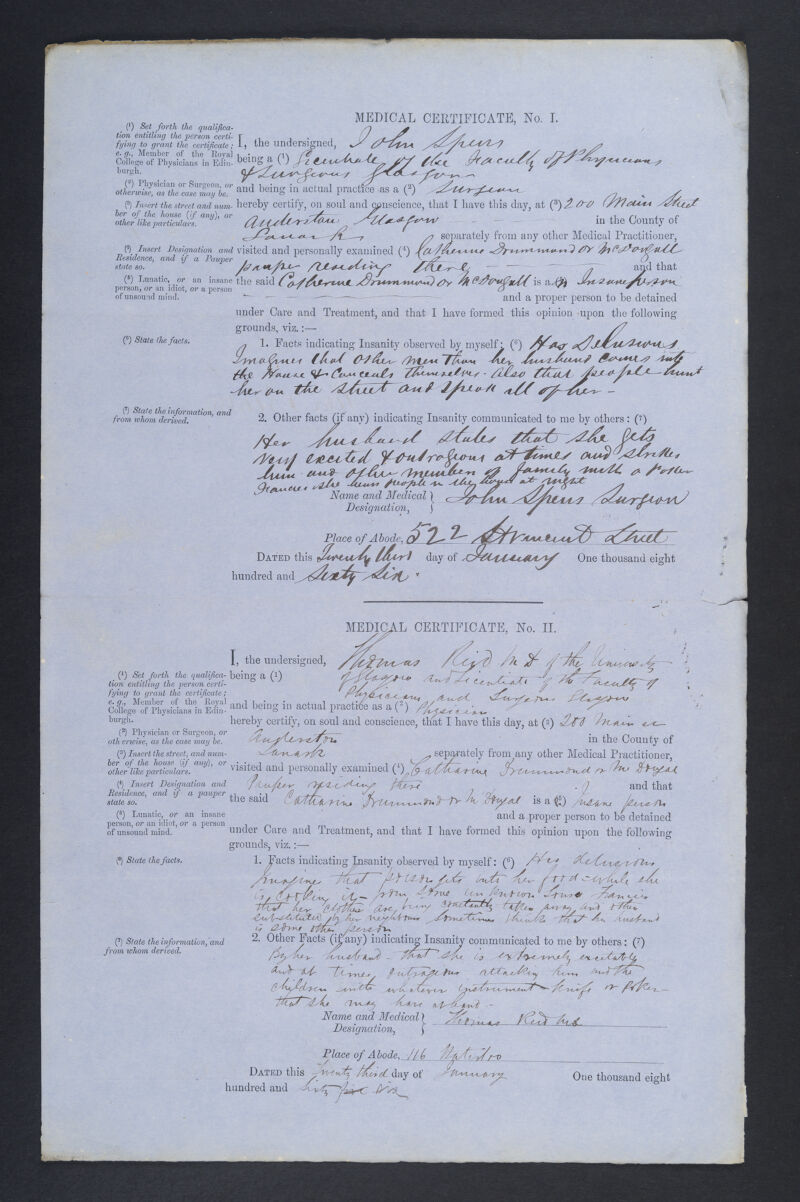 MEDICAL CERTIFICATE, No. I.
(¹) Set forth the qualifica-
tion entitling the person certi-
fying to grant the certificate;
e. g., Member of the Royal
College of Physicians in Edin-
burgh.
I, the undersigned, John Spens
being a (¹) Licentiate of the Faculty of Physicians
& Surgeons Glasgow
(²) Physician or Surgeon, or
otherwise, as the case may be.
and being in actual practice as a (²) Surgeon
(³) Insert the street and num-
ber of the house (if any), or
other like particulars.
hereby certify, on soul and conscience, that I have this day, at (³) 200 Main Street
Anderston Glasgow in the County of
Lanark separately from any other Medical Practitioner,
(⁴) Insert Designation and
Residence, and if a Pauper
state so.
visited and personally examined (⁴) Catherine Drummond or McDougall
pauper residing there and that
(⁵) Lunatic, or an insane
person, or an idiot, or a person
of unsound mind.
the said Catherine Drummond or McDougall is a (⁵) Insane person
and a proper person to be detained
under Care and Treatment, and that I have formed this opinion upon the following
grounds, viz.:—
(⁶) State the facts.
1. Facts indicating Insanity observed by myself: (⁶) Has Delusions
Imagines that other men than her husband comes into
the House & Conceals themselves. Also that people hunt
her on the street and speak ill of her—
(⁷) State the information, and
from whom derived.
2. Other facts (if any) indicating Insanity communicated to me by others: (⁷)
Her husband states that she gets
very excited & outrageous at times and strikes
him and other members of family with a Poker
Fancies she hears people in the house at night
Name and Medical Designation, John Spens Surgeon
Place of Abode, 522 St Vincent Street
DATED this Twenty third day of January One thousand eight
hundred and Sixty Six.
MEDICAL CERTIFICATE, No. II.
(¹) Set forth the qualifica-
tion entitling the person certi-
fying to grant the certificate;
e. g., Member of the Royal
College of Physicians in Edin-
burgh.
I, the undersigned, Thomas Reid M D of the University
being a (¹) of Glasgow and Licentiate of the Faculty of
Physicians and Surgeons Glasgow
(²) Physician or Surgeon, or
otherwise, as the case may be.
and being in actual practice as a (²) Physician
(³) Insert the street, and num-
ber of the house (if any), or
other like particulars.
hereby certify, on soul and conscience, that I have this day, at (³) 200 Main St
Anderston in the County of
Lanark separately from any other Medical Practitioner,
(⁴) Insert Designation and
Residence, and if a pauper
state so.
visited and personally examined (⁴) Catharine Drummond or McDougal
Pauper residing there and that
(⁵) Lunatic, or an insane
person, or an idiot, or a person
of unsound mind.
the said Catharine Drummond or McDougal is a (⁵) Insane person
and a proper person to be detained
under Care and Treatment, and that I have formed this opinion upon the following
grounds, viz.:—
(⁶) State the facts.
1. Facts indicating Insanity observed by myself: (⁶) Has delusions
Imagines that poison gets into her food while she
is cooking it—from some unknown source Fancies
that her clothes are being constantly taken away and other
substituted by her neighbours Sometimes thinks that her husband
is some other person
(⁷) State the information, and
from whom derived.
2. Other Facts (if any) indicating Insanity communicated to me by others: (⁷)
By her husband—that she is extremely excitable
and at times outrageous attacking him and the
children with whatever instrument—knife or poker—
that she may have at hand—
Name and Medical Designation, Thomas Reid MD
Place of Abode, 116 Waterloo
DATED this Twenty third day of January One thousand eight
hundred and Sixty five Six